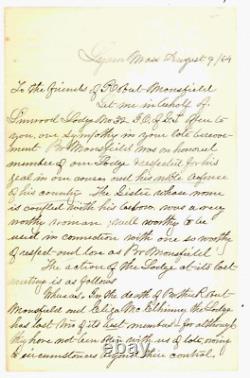 Lynn Mass August 9/64
To the friends of Robert Mansfield
Let me in behalf of
Linwood Lodge No 32 I.O.G.T. offer to
you, our sympathy in your late bereave-
ment Bro Mansfield was an honored
member of our Lodge respected for his
zeal in our cause and his noble defence
of his country. The Sister whose name
is coupled with his decease, was a very
worthy woman, well worthy to be
used in connection with one so worthy
of respect and love as Bro Mansfield
The action of the Lodge at its last
meeting is as follows
Whereas In the death of Brother Robert
Mansfield and Eliza McElhinny the Lodge
has lost two of its best members - for although
they have not been with us of late owing
to circumstances beyond their control,